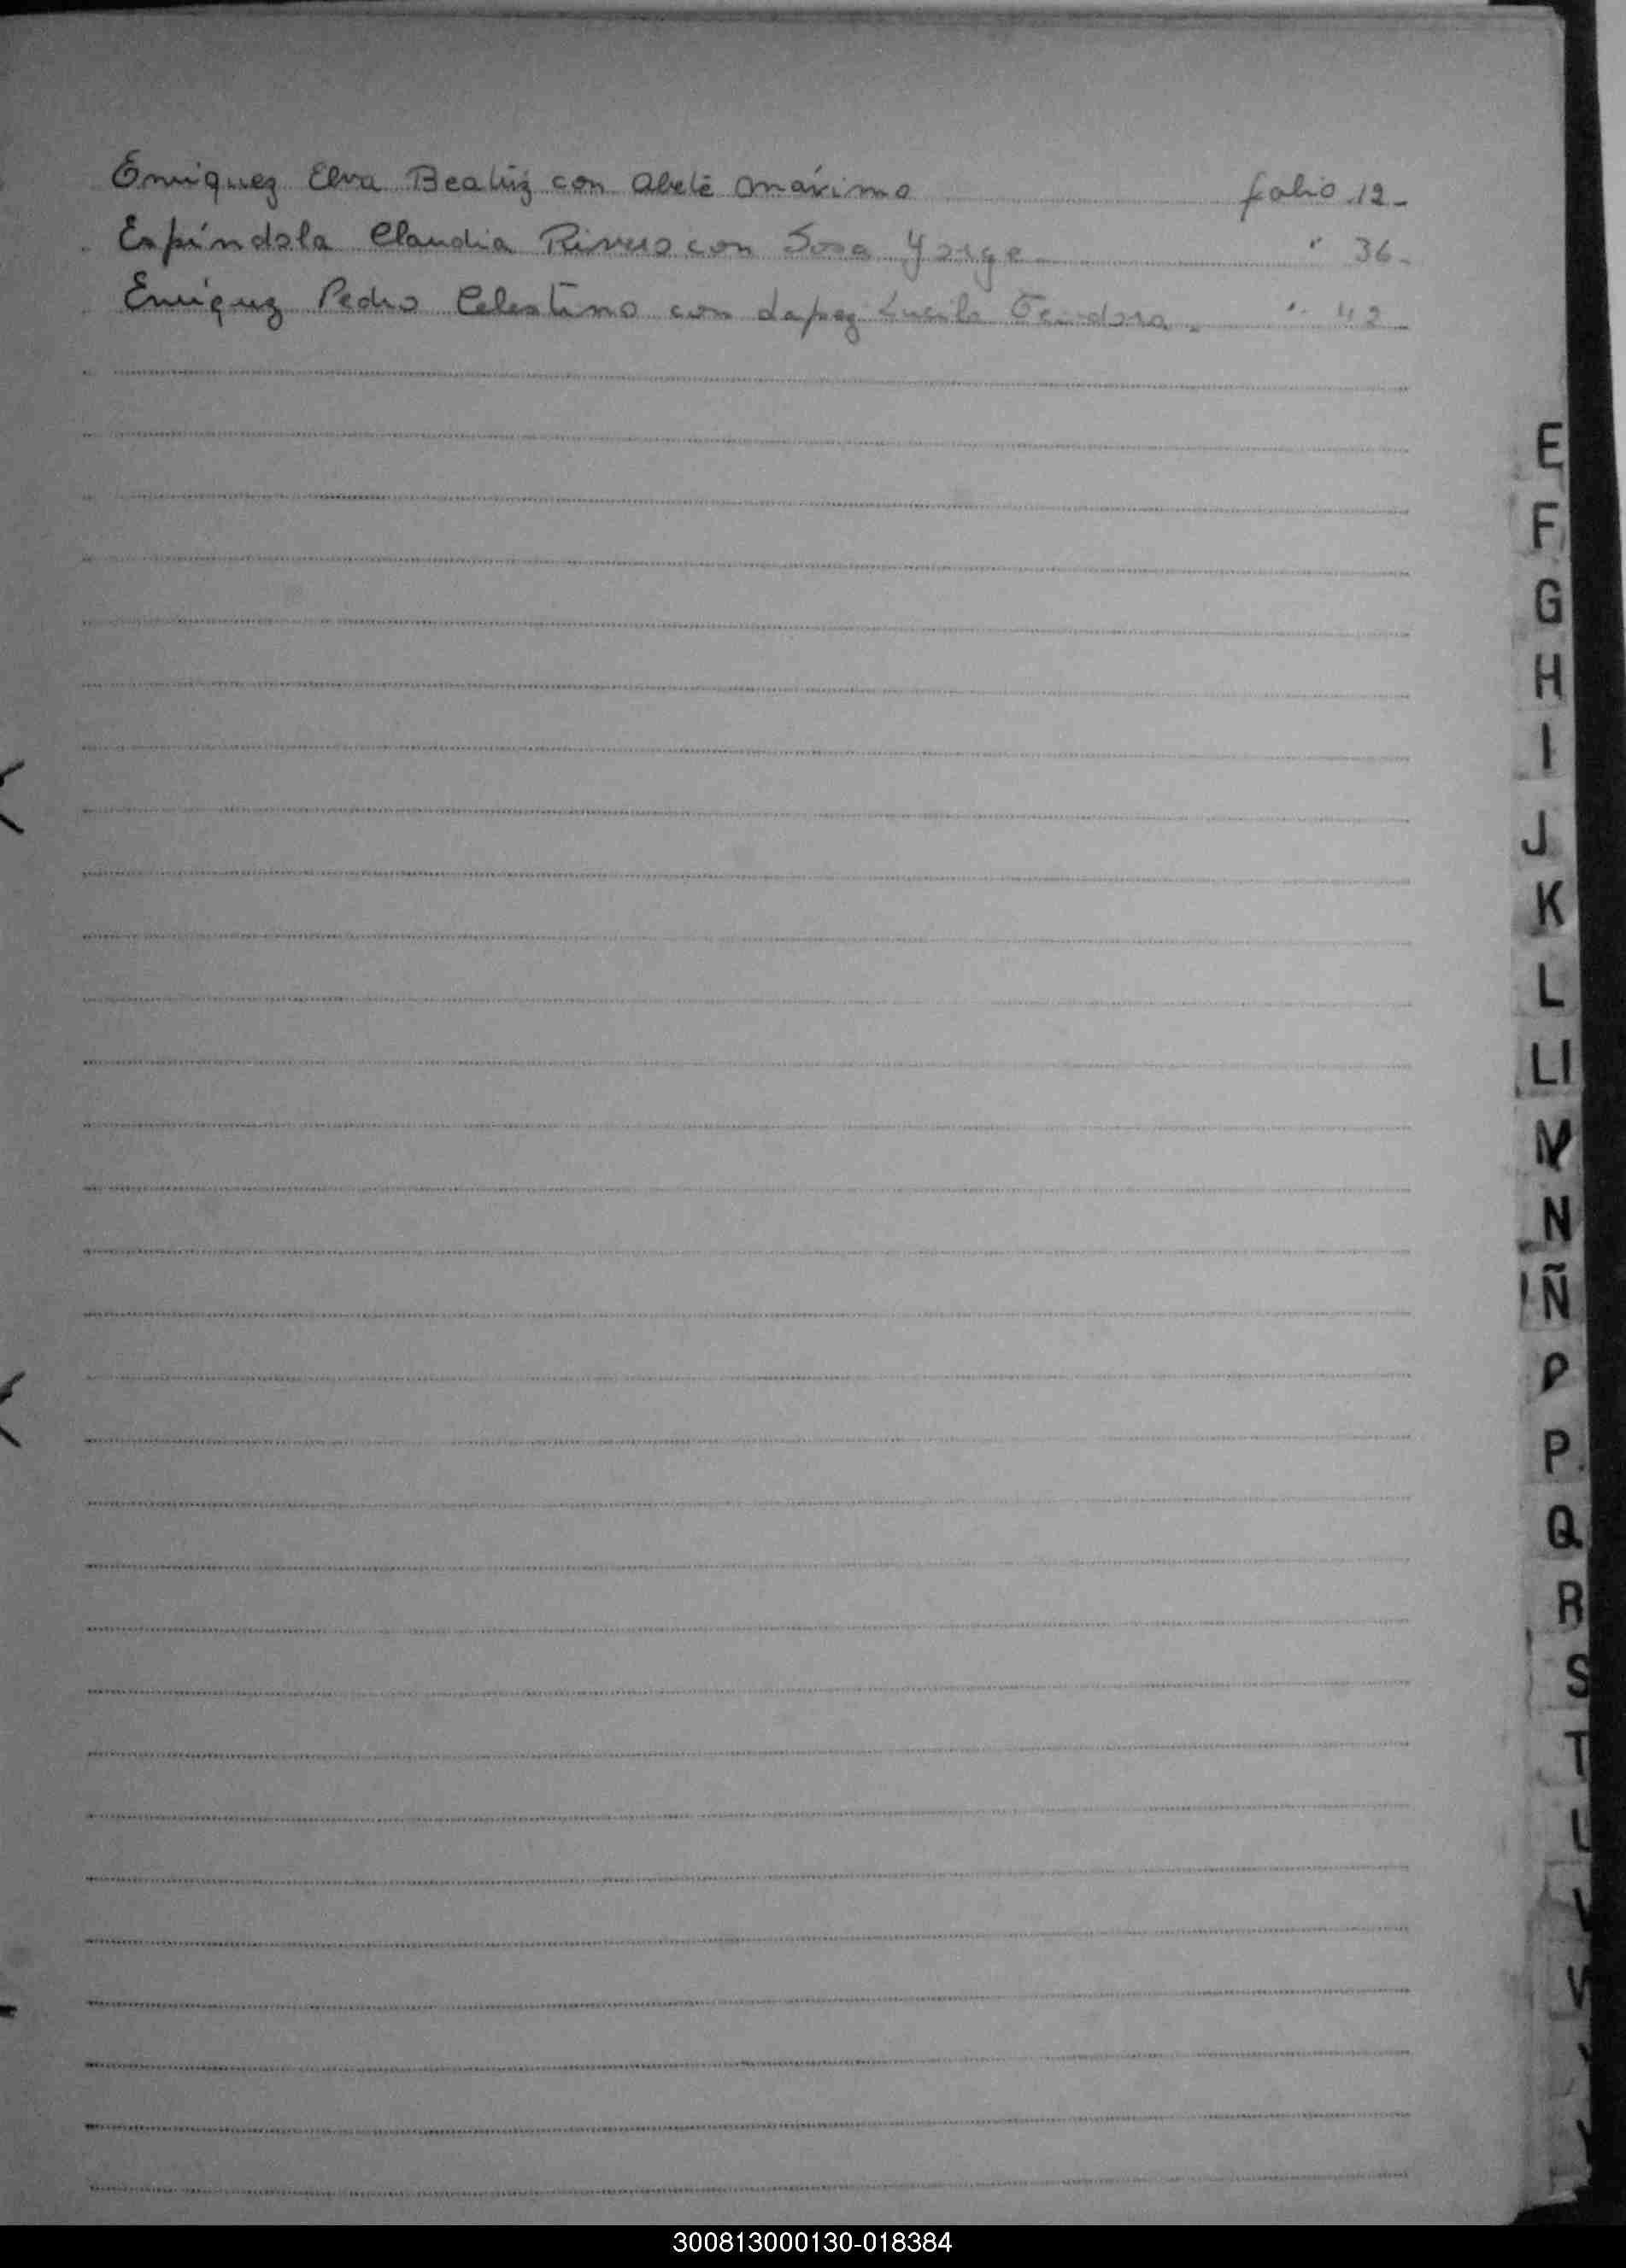 Enriquez Elva Beatriz con Abelé Máximo folio 12-
Espíndola Claudia Rivero con Sosa Yorge " 36-
Enriquez Pedro Celestino con Lopez Lucila Teodora - " 42
E
F
G
H
I
J
K
L
Ll
M
N
Ñ
P
P
Q
R
S
T
V
300813000130-018384